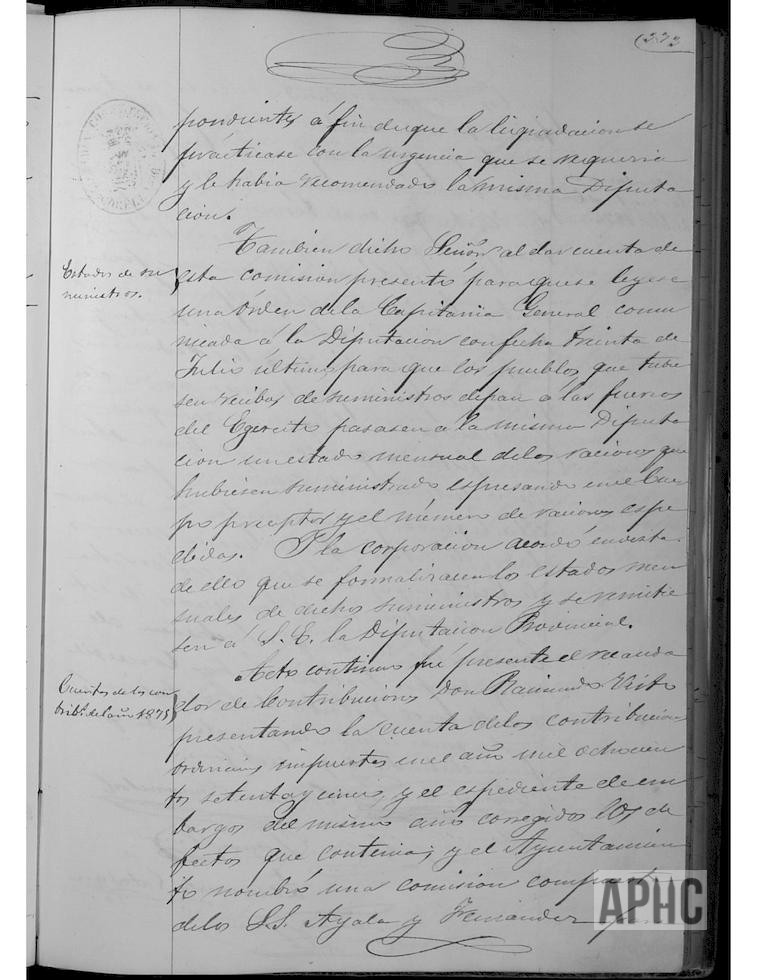 333
pondientes á fin de que la liquidacion se
practicase con la urgencia que se requeria
y le habia recomendado la misma Diputa
cion.
Tambien dicho Señor al dar cuenta de
Estados de su
ministros.
esta comision presentó para que se leyese
una órden de la Capitania General comu
nicada á la Diputacion con fecha treinta de
Julio último para que los pueblos que tubie
sen recibos de suministros á las fuerzas
del Egercito pasasen á la misma Diputa
cion un estado mensual de las raciones que
hubiesen suministrado espresando en el Cuer
po preceptor y el número de raciones espe
didas. I la corporacion acordó en vista
de ello que se formalizasen los estados men
suales de dichos suministros y se remitie
sen á S. E. la Diputacion Provincial.
Acto continuo fué presente el recauda
Cuentas de las con
tribs. del año 1875
dor de Contribuciones Don Raimundo
presentando la cuenta de las contribuciones
ordinarias impuestas en el año mil ochocien
tos setenta y cinco, y el espediente de em
bargos del mismo año corregidos los de
fectos que contenia; y el Ayuntamien
to nombró una comision compuesta
de los S.S. Ayala y Fernandez
APHC